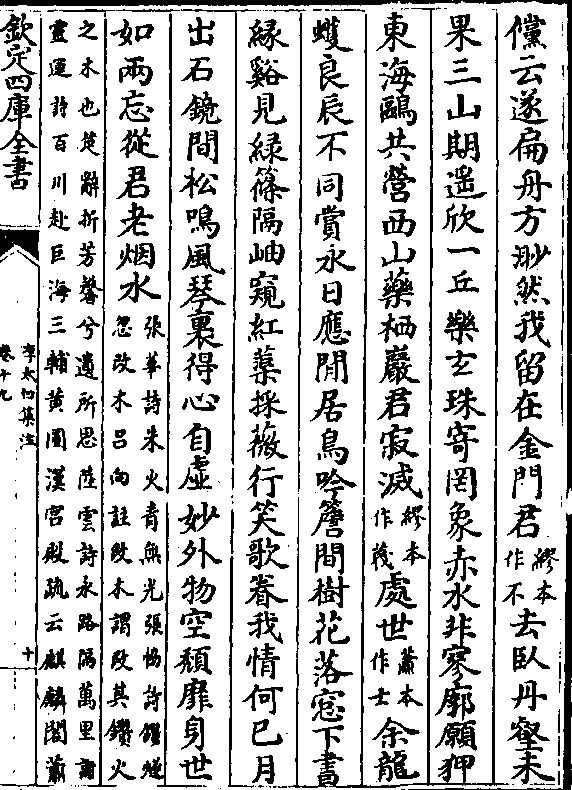 儻云遂扁舟方渺然我留在金門君繆本作不去臥丹壑未
果三山期遥欣一丘樂玄珠寄罔象赤水非寥廓願狎
東海鷗共營西山藥栖巖君寂滅繆本作蔑處世蕭本作士余龍
蠖良辰不同賞永日應閒居鳥吟簷間樹花落窓下書
緑谿見緑篠隔岫窺紅蕖採薇行笑歌眷我情何已月
出石鏡間松鳴風琴裏得心自虛妙外物空頽靡身世
如兩忘從君老烟水張華詩朱火青無光張協詩鑽燧忽改木吕向註改木謂改其鑽火
之木也楚辭折芳馨兮遺所思陸雲詩永路隔萬里謝
靈運詩百川赴巨海三輔黄圖漢宮殿疏云麒麟閣蕭
欽定四庫全書
李太白集注
卷十九
十